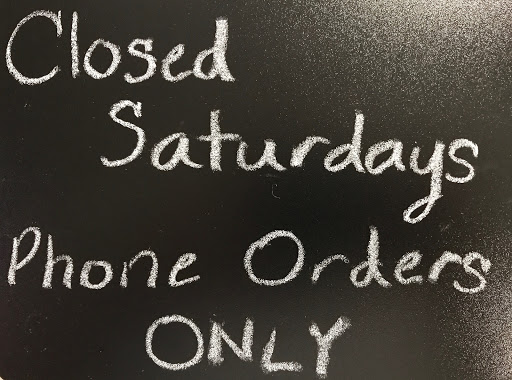 Closed
Saturdays
Phone Orders
ONLY